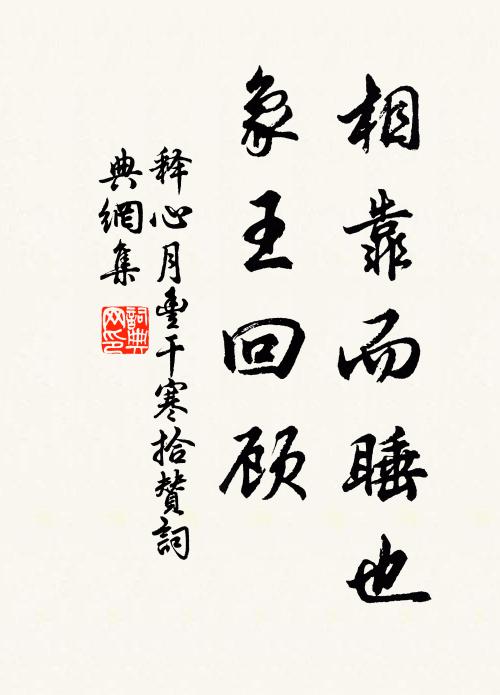 相靠而睡也
象王回顾
释心月豐干寒拾赞詞
典網集
詞典网印